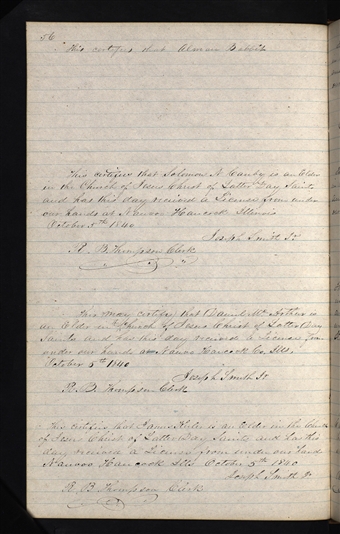 56
This certifies that Almon Babbit
This certifies that Solomon N. Canby is an Elder
in the Church of Jesus Christ of Latter Day Saints
and has this day received a License from under
our hands at Nauvoo Hancock Illinois
October 5th 1840
Joseph Smith Jr
R. B. Thompson Clerk
This may certify that Daniel Mc Arthur is
an Elder in the Church of Jesus Christ of Latter Day
Saints and has this day received a License from
under our hands at Nauvoo Hancock Co. Ills.
October 5th 1840
Joseph Smith Jr.
R. B. Thompson Clerk
This certifies that James is an Elder in the Church
of Jesus Christ of Latter Day Saints and has this
day received a License from under our hand
Nauvoo Hancock Ills October 5th 1840
Joseph Smith Jr.
R B Thompson Clerk